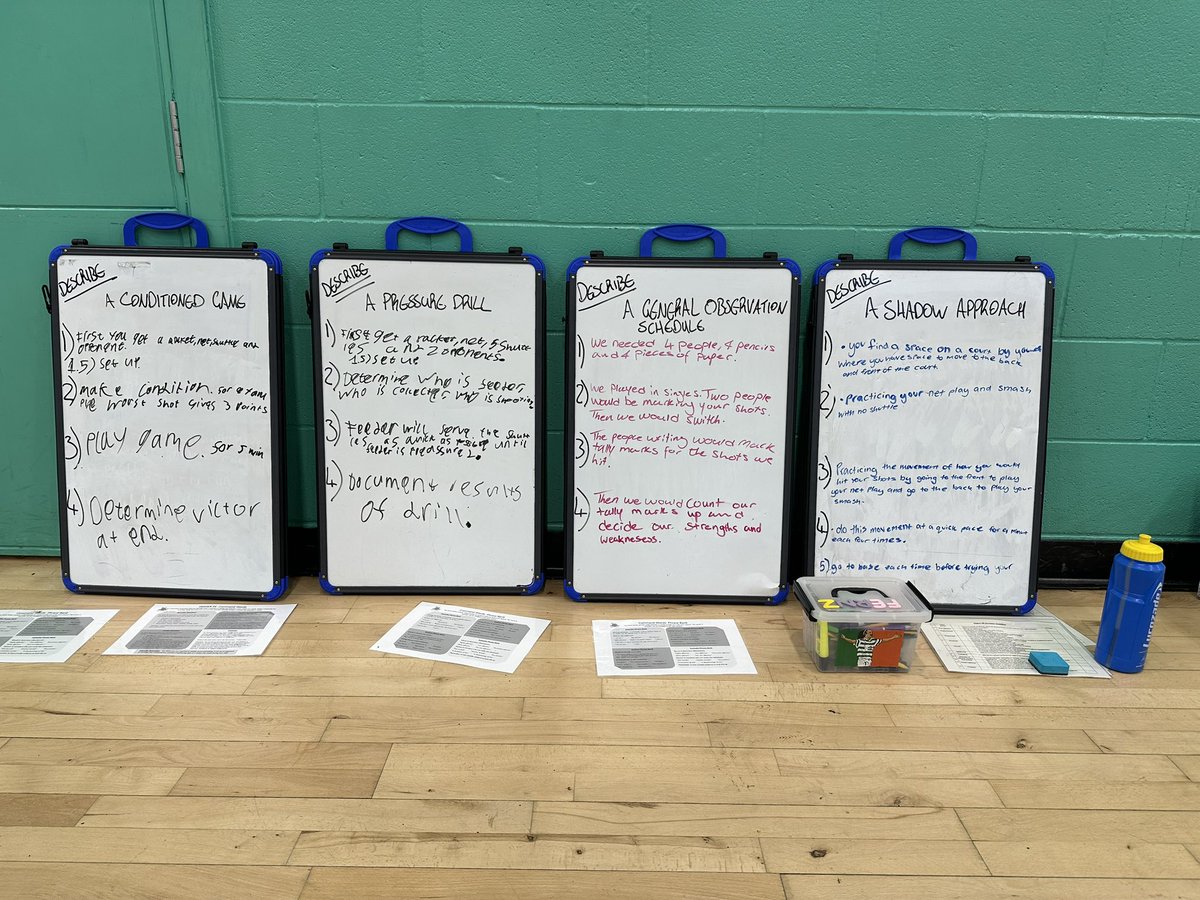 DESCRIBE
A CONDITIONED GAME
1) First you get a racket, net, shuttle and
oponent.
1.5) set up
2) make condition. for exam
ple worst shot gives 3 points
3) Play game. for 5 min
4) Determine victor
at end.
DESCRIBE
A PRESSURE DRILL
1) First get a racket, net, 5 shutt
les and 2 oponents.
1.5) set up
2) Determine who is feeder,
who is collecter, who is
3) Feeder will serve the shutt
les as quick as until
4) Document results
of drill.
DESCRIBE
A GENERAL OBSERVATION
SCHEDULE
1) We needed 4 people, 4 pencils
and 4 pieces of paper.
2) We played in singles. Two people
would be marking your shots.
Then we would switch.
3) The people writing would mark
tally marks for the shots we
hit.
4) Then we would count our
tally marks up and
decide our strengths and
weaknesess.
DESCRIBE
A SHADOW APPROACH
1) • you find a space on a court by
where you have space to move to the back
and front of the court.
2) • Practicing your net play and smash
with no shuttle
3) Practicing the movement of how you would
hit your shots by going to the front to play
your net play and go to the back to play your
smash.
4) • do this movement at a quick pace for a minute
each four times.
5) go to base each time before trying your